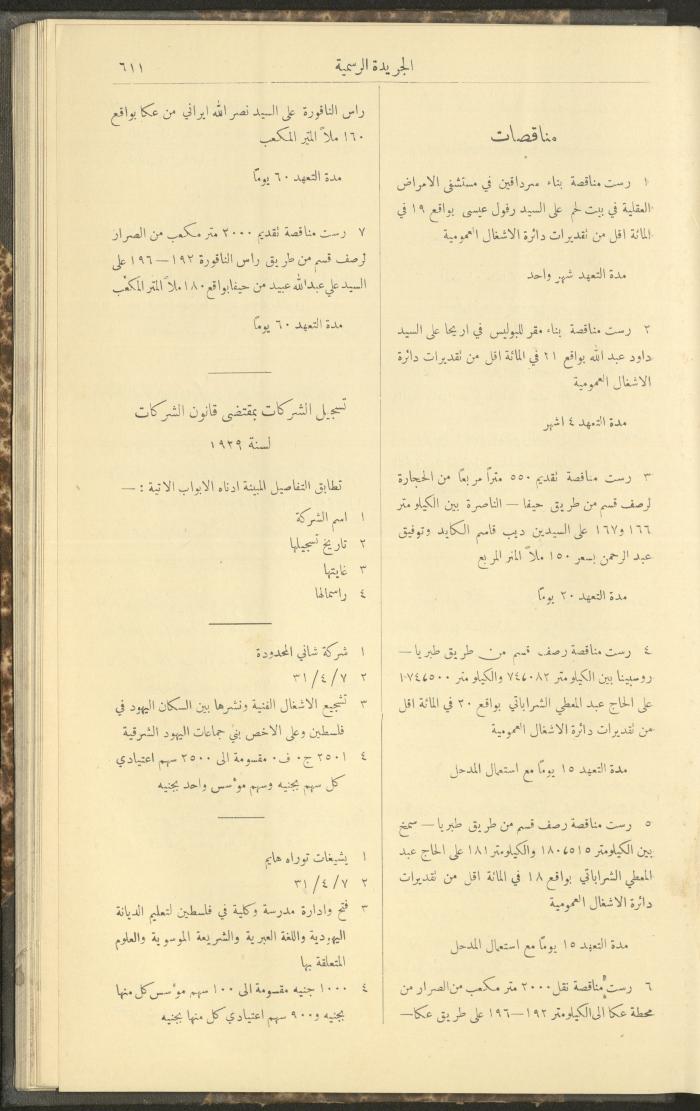 الجريدة الرسمية
٦١١
مناقصات
١ رست مناقصة بناء سرداقين في مستشفى الامراض
العقلية في بيت لحم على السيد رفول عيسى بواقع ١٩ في
المائة اقل من تقديرات دائرة الاشغال العمومية
مدة التعهد شهر واحد
٢ رست مناقصة بناء مقر للبوليس في اريحا على السيد
داود عبد الله بواقع ٢١ في المائة اقل من تقديرات دائرة
الاشغال العمومية
مدة التعهد ٤ اشهر
٣ رست مناقصة تقديم ٥٥٠ متراً مربعاً من الحجارة
لرصف قسم من طريق حيفا — الناصرة بين الكيلومتر
١٦٦ و١٦٧ على السيدين ديب قاسم الكايد وتوفيق
عبد الرحمن بسعر ١٥٠ ملاً المتر المربع
مدة التعهد ٢٠ يوماً
٤ رست مناقصة رصف قسم من طريق طبريا —
روسبينا بين الكيلومتر ٧٤٧٠٨٢ والكيلومتر ١٧٤٧٥٠٠
على الحاج عبد المعطي الشراباتي بواقع ٢٠ في المائة اقل
من تقديرات دائرة الاشغال العمومية
مدة التعهد ١٥ يوماً مع استعمال المدحل
٥ رست مناقصة رصف قسم من طريق طبريا — سمخ
بين الكيلومتر ١٨٠٧٥١٥ والكيلومتر ١٨١ على الحاج عبد
المعطي الشراباتي بواقع ١٨ في المائة اقل من تقديرات
دائرة الاشغال العمومية
مدة التعهد ١٥ يوماً مع استعمال المدحل
٦ رست مناقصة نقل ٢٠٠٠ متر مكعب من الصرار من
محطة عكا الى الكيلومتر ١٩٢—١٩٦ على طريق عكا—
راس الناقورة على السيد نصر الله ايراني من عكا بواقع
١٦٠ ملاً المتر المكعب
مدة التعهد ٦٠ يوماً
٧ رست مناقصة تقديم ٢٠٠٠ متر مكعب من الصرار
لرصف قسم من طريق راس الناقورة ١٩٢—١٩٦ على
السيد علي عبدالله عبيد من حيفا بواقع ١٨٠ ملاً المتر المكعب
مدة التعهد ٦٠ يوماً
تسجيل الشركات بمقتضى قانون الشركات
لسنة ١٩٢٩
تطابق التفاصيل المبينة ادناه الابواب الاتية : —
١ اسم الشركة
٢ تاريخ تسجيلها
٣ غايتها
٤ راسمالها
١ شركة شاني المحدودة
٢ ٣١/٤/٧
٣ تشجيع الاشغال الفنية ونشرها بين السكان اليهود في
فلسطين وعلى الاخص بني جماعات اليهود الشرقية
٤ ٢٥٠١ ج٠ ف٠ مقسومة الى ٢٥٠٠ سهم اعتيادي
كل سهم بجنيه وسهم مؤسس واحد بجنيه
١ يشيغات توراه هايم
٢ ٣١/٤/٧
٣ فتح وادارة مدرسة وكلية في فلسطين لتعليم الديانة
اليهودية واللغة العبرية والشريعة الموسوية والعلوم
المتعلقة بها
٤ ١٠٠٠ جنيه مقسومة الى ١٠٠ سهم مؤسس كل منها
بجنيه و٩٠٠ سهم اعتيادي كل منها بجنيه